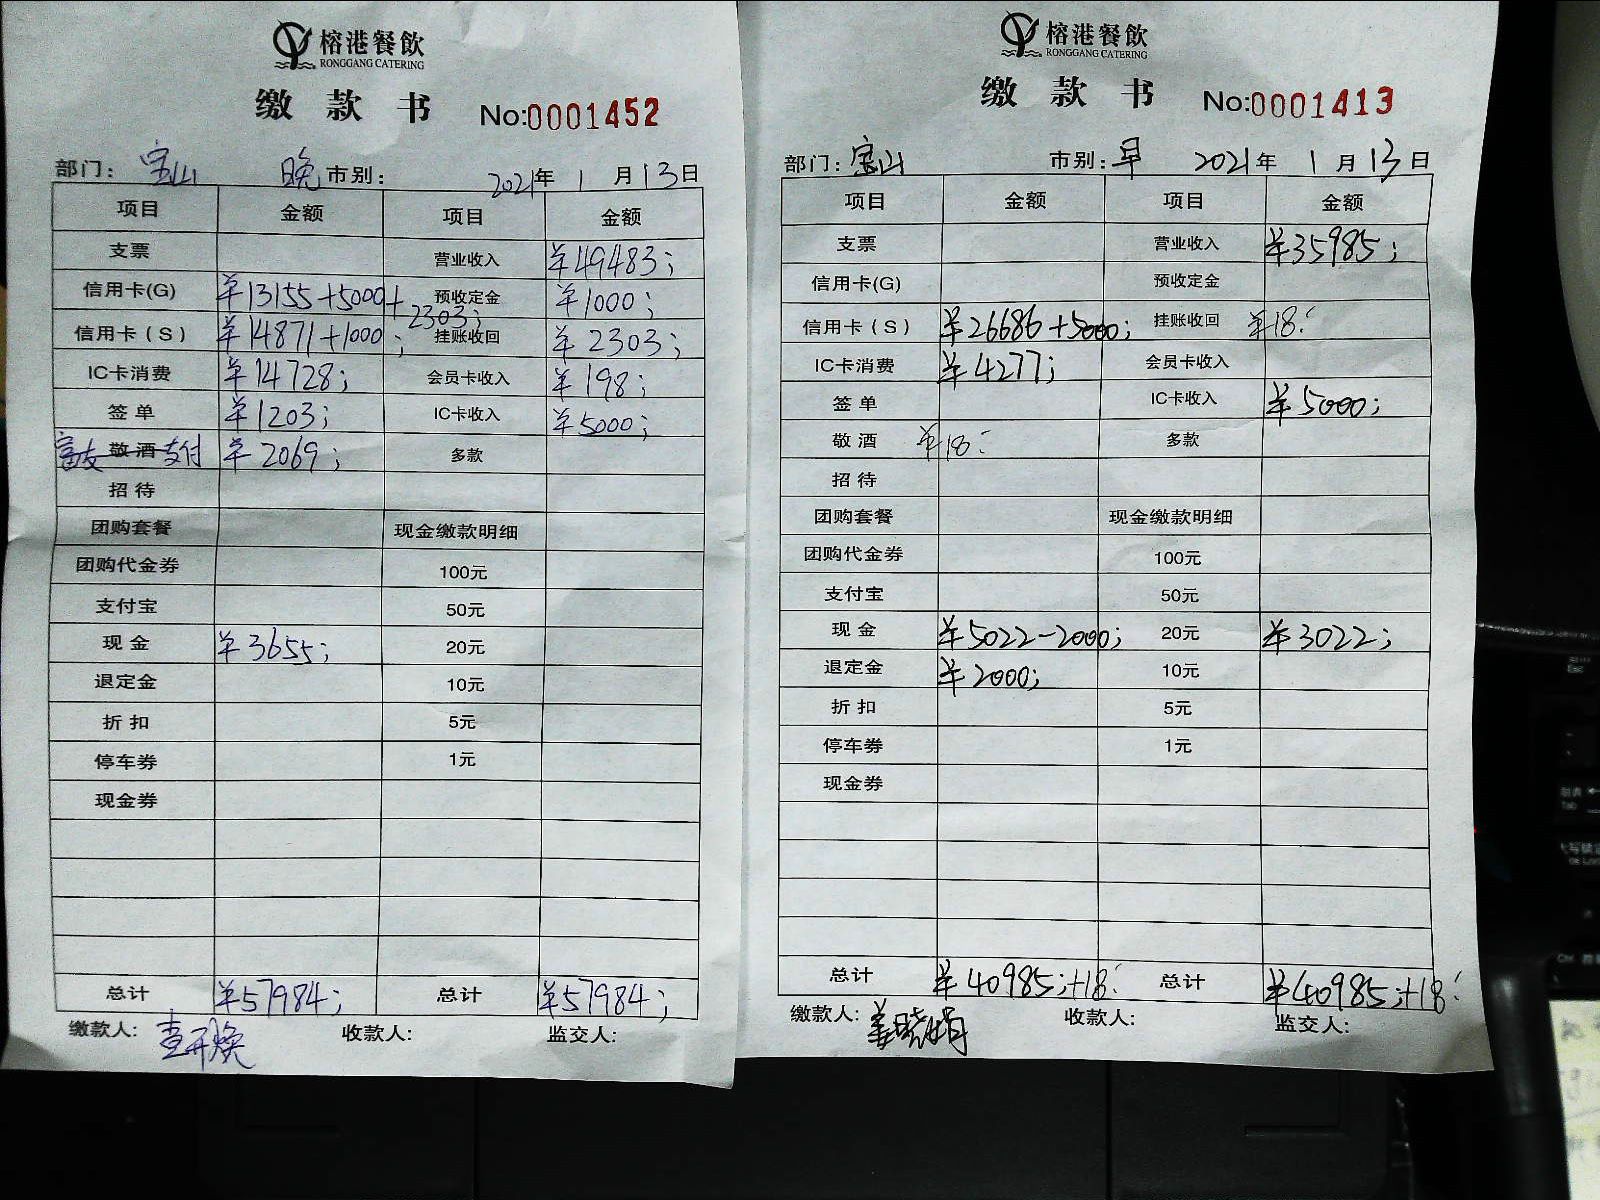 榕港餐飲
RONGGANG CATERING
缴款书 No:0001452
部门: 宝山 晚市别: 2021年 1 月 13 日
项目 金额 项目 金额
支票 营业收入 ¥49483;
信用卡(G) ¥13155+5000+2303; 预收定金 ¥1000;
信用卡(S) ¥14871+1000; 挂账收回 ¥2303;
IC卡消费 ¥14728; 会员卡收入 ¥198;
签单 ¥1203; IC卡收入 ¥5000;
富友 敬酒 支付 ¥2069; 多款
招待
团购套餐 现金缴款明细
团购代金券 100元
支付宝 50元
现金 ¥3655; 20元
退定金 10元
折扣 5元
停车券 1元
现金券
总计 ¥57984; 总计 ¥57984;
缴款人: 收款人: 监交人:
榕港餐飲
RONGGANG CATERING
缴款书 No:0001413
部门: 宝山 市别: 早 2021年 1 月 13 日
项目 金额 项目 金额
支票 营业收入 ¥35985;
信用卡(G) 预收定金
信用卡(S) ¥26686+5000; 挂账收回 ¥18:
IC卡消费 ¥4277; 会员卡收入
签单 IC卡收入 ¥5000;
敬酒 ¥18: 多款
招待
团购套餐 现金缴款明细
团购代金券 100元
支付宝 50元
现金 ¥5022-2000; 20元 ¥3022;
退定金 ¥2000; 10元
折扣 5元
停车券 1元
现金券
总计 ¥40985;+18: 总计 ¥40985;+18:
缴款人: 姜晓娟 收款人: 监交人: